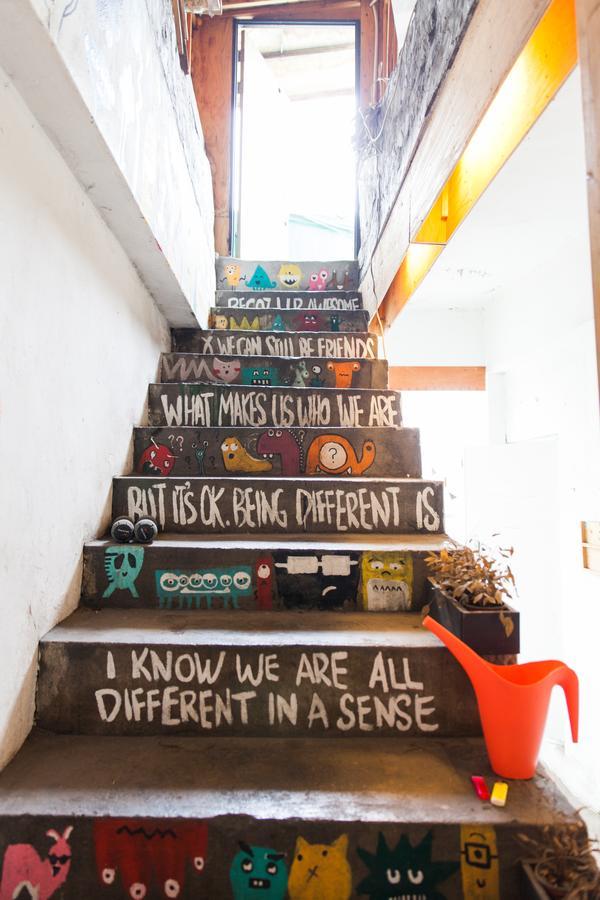 I KNOW WE ARE ALL
DIFFERENT IN A SENSE
BUT IT'S OK. BEING DIFFERENT IS
WHAT MAKES US WHO WE ARE
WE CAN STILL BE FRIENDS
BECOZ U R AWESOME